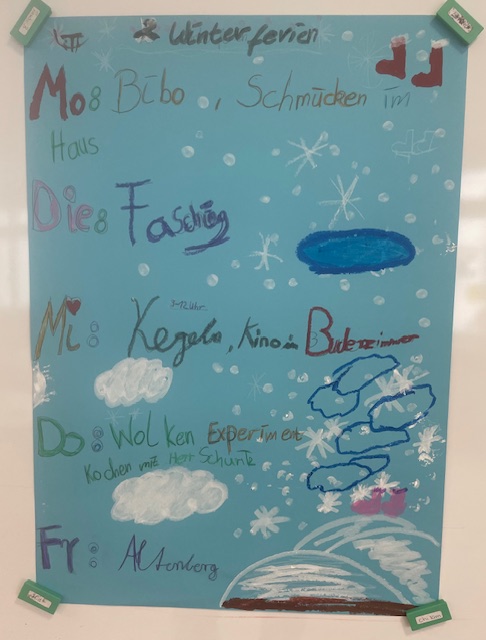 Winterferien
Mo: Bibo, Schmücken im
Haus
Die: Fasching
Mi: Kegeln, Kino in Buderzimmer
Do: Wolken Experiment
Kochen mit Herr Schunk
Fr: Altenberg